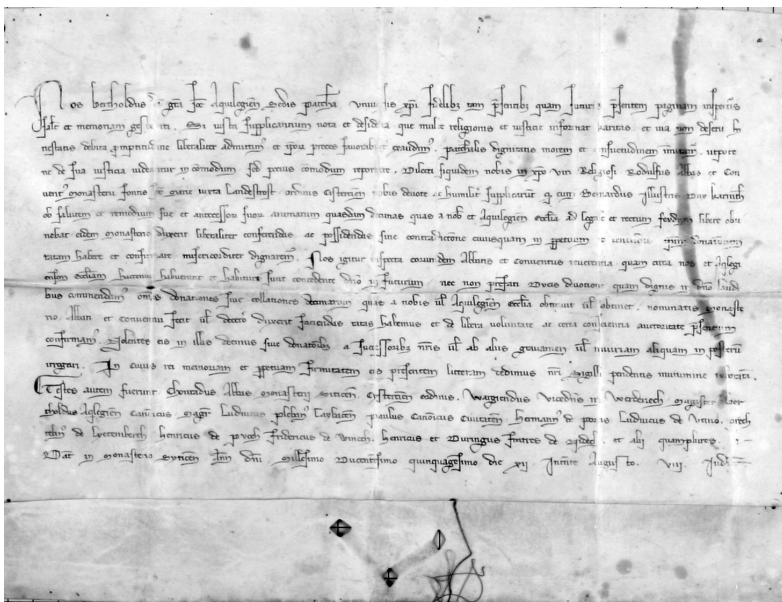 Nos bertholdus gra sce Aquilegien Sedis patcha Universis xpi fidelibz tam psentibz quam futuris psentem paginam inspecturis
salt et memoriam gestoru. Si iusti supplicantium vota et desideria que multe religionis et iusticie informat karitas et via non deserit ho
nestatis debita pmptitudine liberaliter admittim et iporu preces favorabilit exaudim patchalis dignitatis morem et consuetudinem imitam. utpote
ne de sua iusticia videatur incomodum sed potius comodum reportare. Dilecti siquidem nobis in xpo viri Religiosi Rodulfus Abbas et Con
vent monasterii fontis sce marie iuxta Landestrost ordinis Cisterciens nobis devote et humilit supplicarunt q cum Bernardus Illustris Dux karinth
ob salutem et remedium sue et antecessoru suoru animarum quasdam decimas quas a nob et Aquilegien ecclia ad legale et rectum feudum libere obti
nebat eidem monasterio duxerit liberaliter conferendas ac possidendas sine contradictione cuiusquam in ppetuum donationem
ratam habere et confirmare misericorditer dignarem. Nos igitur inspecta eorundem Abbatis et Conventus reverentia quam circa nos et Aqleg
ensem eccliam hactenus habuerunt et habituri sunt concedente dno in futurum, nec non prefati Ducis devotione quam dignis in dno laudi
bus comendam omis donationes sive collationes decimarum quas a nobis vl Aquilegien ecclia obtinuit vl obtinet nominatis monaste
rio Abbati et conventui fecit vl decetero duxerit faciendas ratas habemus et de libera voluntate ac certa conscientia auctoritate psentium
confirmam. Nolentes eis in illis decimis sive donatoibz a successoribz nris vl ab aliis gravamen vl iniuriam aliquam in posterum
irrogari. In cuius rei memoriam et ppetuam firmitatem eis presentem litteram dedimus nri sigilli pendentis munimine roborati.
Testes autem fuerunt Chonradus Abbas Monasterii Siticen Cisterciens ordinis. Wargiendus Vicednus in Wertenech Magister Ber
tholdus Aqlegien Canonicus Magr Ludwicus plebanus Laybacen paulus Canonicus Civitaten hermann de portis Ludwicus de Utino. Ortli
cus de Hertenberch henricus de pvch fridericus de Vinch. henricus et Duringus fratres de et alii quamplures
Dat in monasterio Siticen Anno Dni Millesimo Ducentesimo quinquagesimo die xij Intrante Augusto. VIII. Indict